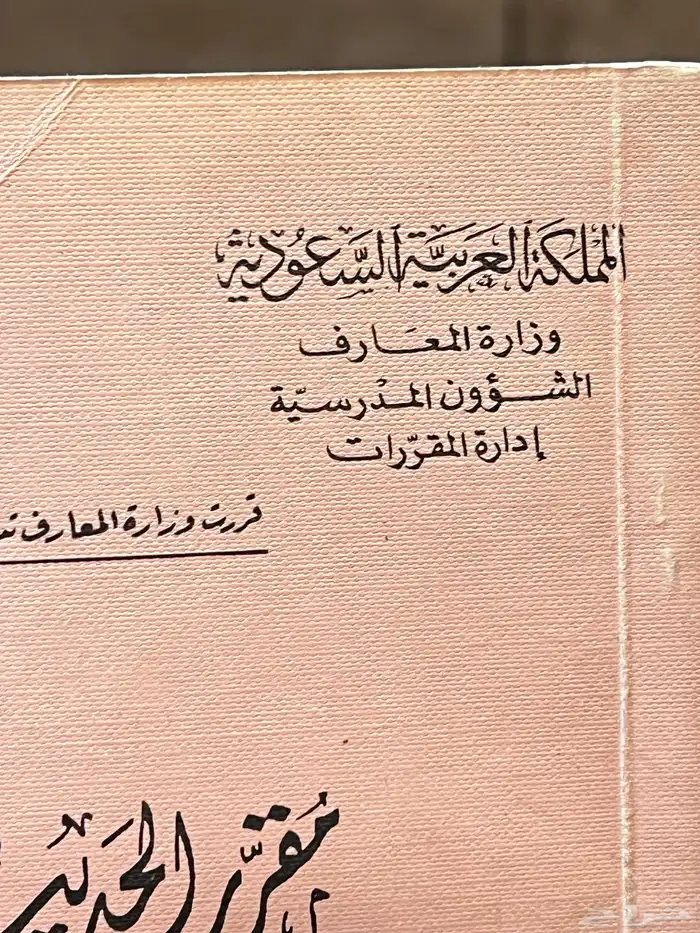 المملكة العربية السعودية
وزارة المعارف
الشؤون المدرسية
إدارة المقررات
قررت وزارة المعارف
مقرر الحديث